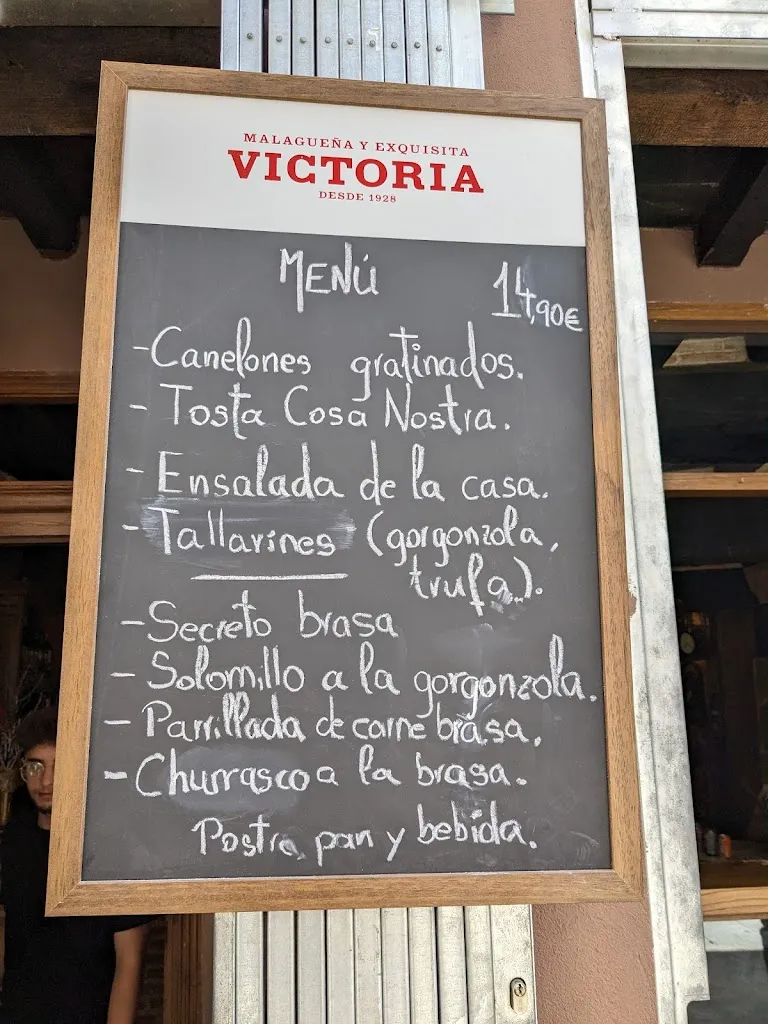 MALAGUEÑA Y EXQUISITA
VICTORIA
DESDE 1928
MENÚ 14,90€
- Canelones gratinados.
- Tosta Cosa Nostra.
- Ensalada de la casa.
- Tallarines (gorgonzola,
trufa).
- Secreto brasa
- Solomillo a la gorgonzola.
- Parrillada de carne brasa.
- Churrasco a la brasa.
Postre, pan y bebida.